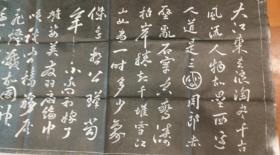 大江東去浪淘盡千古
風流人物故壘西邊
人道是三國周郎赤
壁亂石驚濤
拍岸捲起千堆雪江
山如畫一時多少豪
傑遙想公瑾當
年小喬初嫁了
雄姿英發羽扇綸巾
談笑間檣櫓
飛煙滅故國神